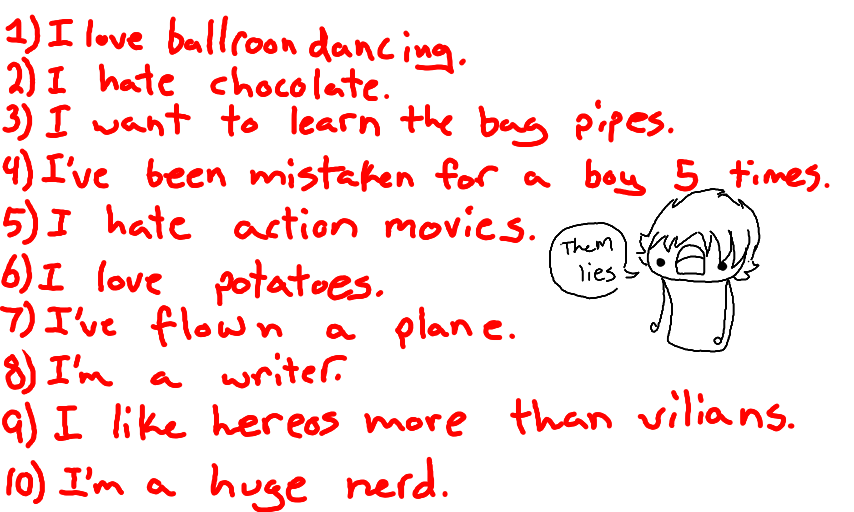 1) I love ballroon dancing.
2) I hate chocolate.
3) I want to learn the bag pipes.
4) I've been mistaken for a boy 5 times.
5) I hate action movies.
Them
lies
6) I love potatoes.
7) I've flown a plane.
8) I'm a writer.
9) I like hereos more than vilians.
10) I'm a huge nerd.